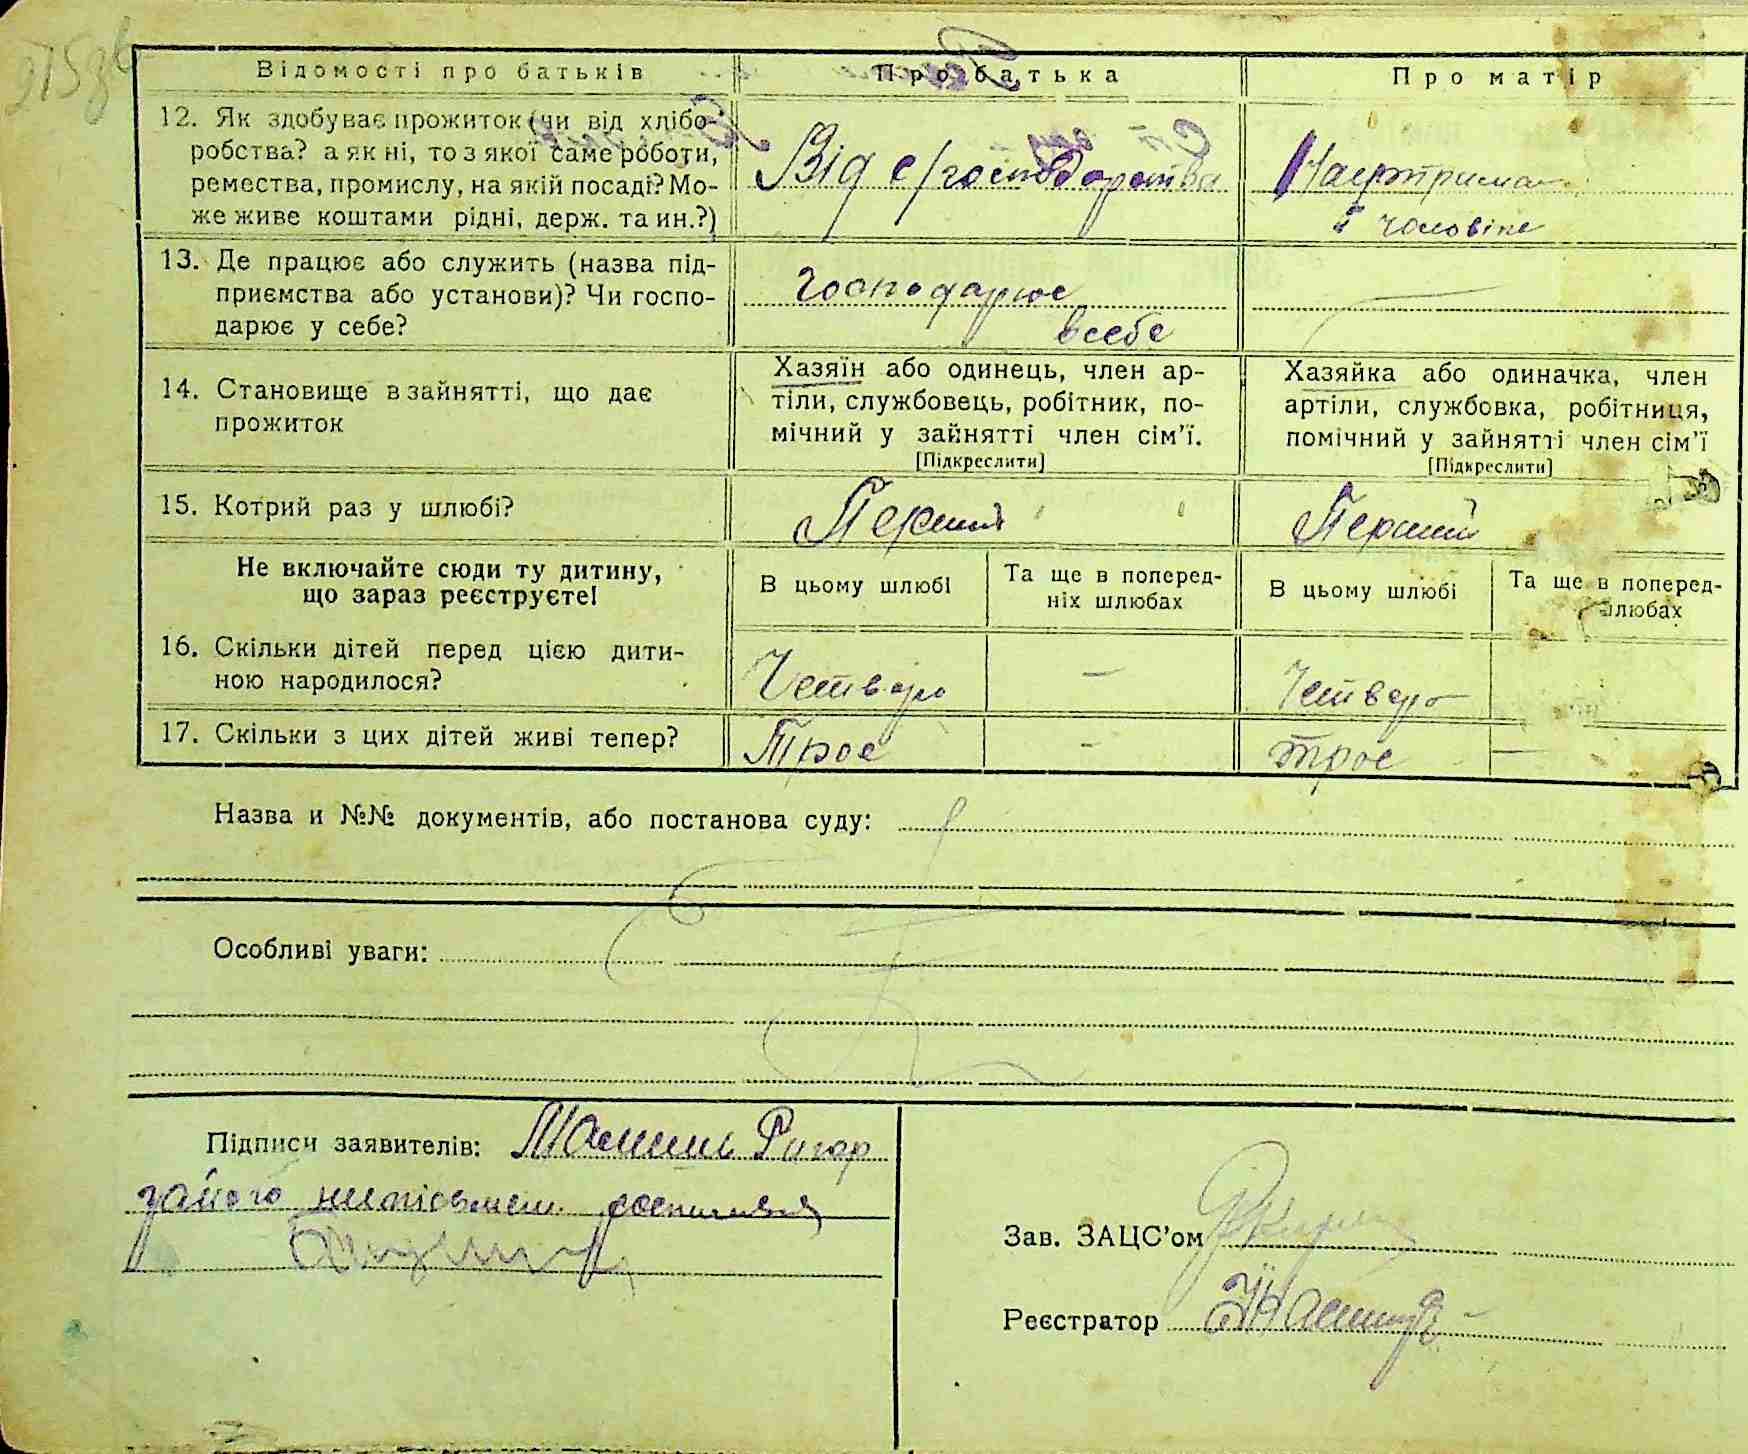 Відомості про батьків
Про батька
Про матір
12. Як здобуває прожиток (чи від хлібо-
робства? а як ні, то з якої саме роботи,
ремества, промислу, на якій посаді? Мо-
же живе коштами рідні, держ. та ин.?)
Від с/господарства
чоловіка
13. Де працює або служить (назва під-
приємства або установи)? Чи госпо-
дарює у себе?
господарює
всебе
14. Становище в зайнятті, що дає
прожиток
Хазяїн або одинець, член ар-
тіли, службовець, робітник, по-
мічний у зайнятті член сім'ї.
[Підкреслити]
Хазяйка або одиначка, член
артіли, службовка, робітниця,
помічний у зайнятті член сім'ї
[Підкреслити]
15. Котрий раз у шлюбі?
Перший
Перший
Не включайте сюди ту дитину,
що зараз реєструєте!
В цьому шлюбі
Та ще в поперед-
ніх шлюбах
В цьому шлюбі
Та ще в поперед-
шлюбах
16. Скільки дітей перед цією дити-
ною народилося?
Четверо
—
Четверо
17. Скільки з цих дітей живі тепер?
Троє
-
троє
—
Назва и №№ документів, або постанова суду:
Особливі уваги:
Підписи заявителів:
Зав. ЗАЦС'ом
Реєстратор